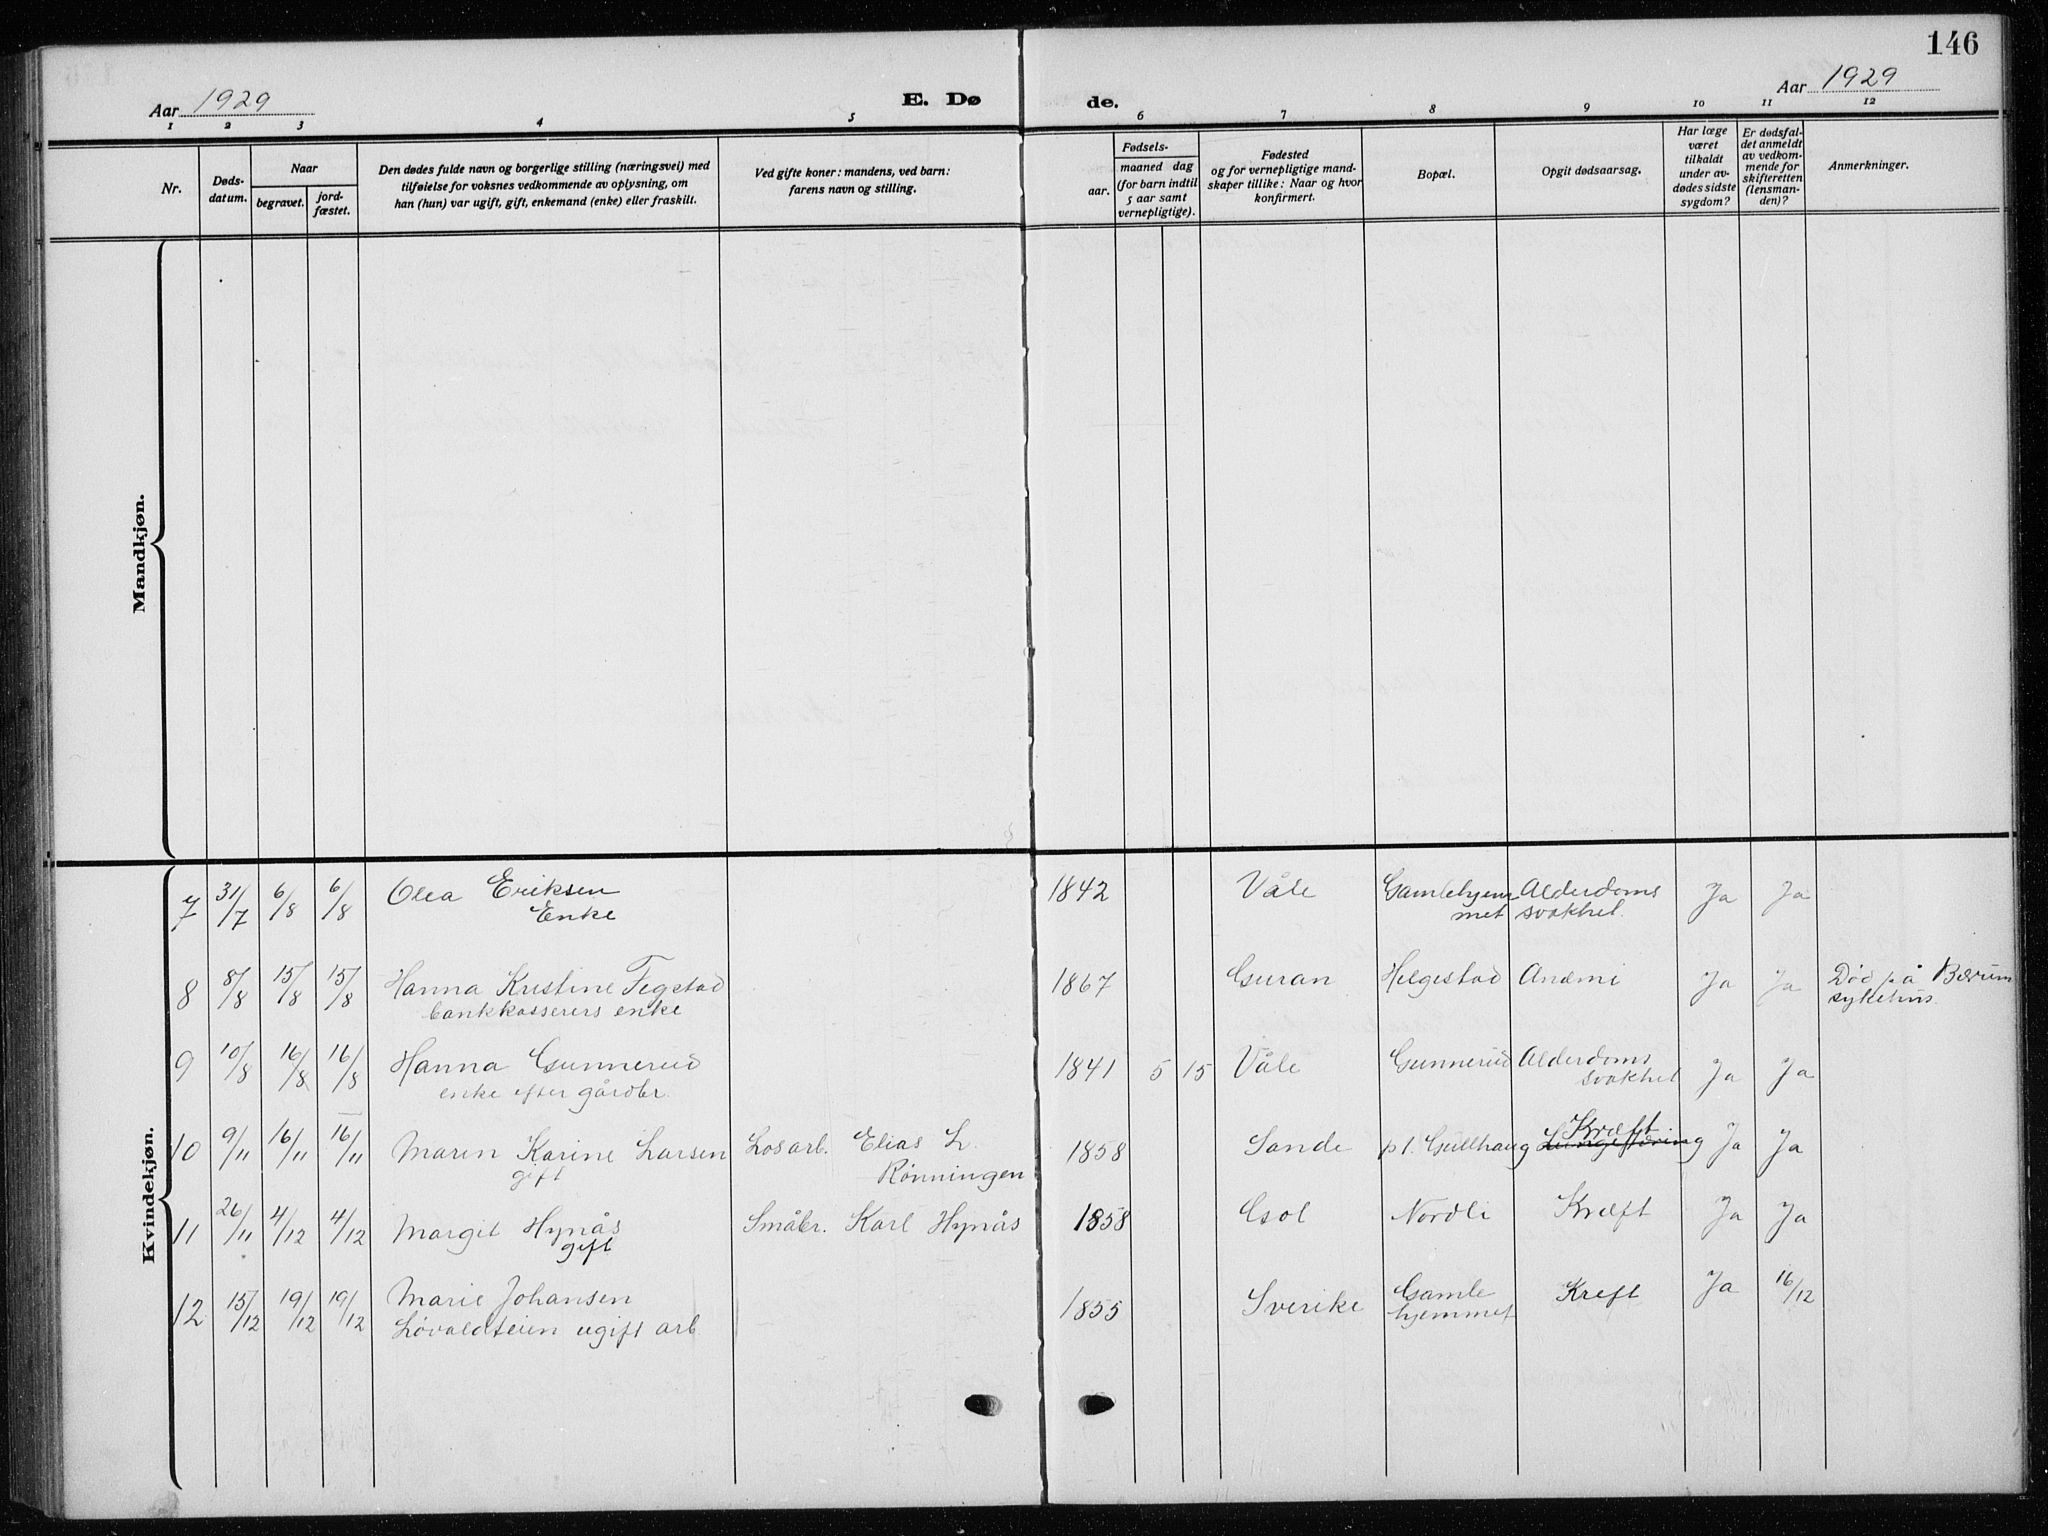 146
Aar 1929
E. Dø
de.
Aar 1929
1 2 3 4 5 6 7 8 9 10 11 12
Nr.
Døds-
datum.
Naar
begravet.
jord-
fæstet.
Den dødes fulde navn og borgerlige stilling (næringsvei) med
tilføielse for voksnes vedkommende av oplysning, om
han (hun) var ugift, gift, enkemand (enke) eller fraskilt.
Ved gifte koner: mandens, ved barn:
farens navn og stilling.
Fødsels-
aar.
maaned dag
(for barn indtil
5 aar samt
vernepligtige).
Fødested
og for vernepligtige mand-
skaper tillike: Naar og hvor
konfirmert.
Bopæl.
Opgit dødsaarsag.
Har læge
været
tilkaldt
under av-
dødes sidste
sygdom?
Er dødsfal-
det anmeldt
av vedkom-
mende for
skifteretten
(lensman-
den)?
Anmerkninger.
Mandkjøn.
Kvindekjøn.
7 31/7 6/8 6/8 Olea Eriksen 1842 Våle Gamlehjem Alderdoms Ja Ja
Enke met svakhet.
8 8/8 15/8 15/8 Hanna Kristine Tegstad 1867 Helgestad Anæmi Ja Ja Død på Bærum
bankkasserers enke sykehus.
9 10/8 16/8 16/8 Hanna Gunnerud 1841 5 15 Våle Gunnerud Alderdoms Ja Ja
enke efter gårdbr. svakhet
10 9/11 16/11 16/11 Maren Karine Larsen Losarb. Elias L. 1858 Sande p t. Gullhaug Kræft Ja Ja
gift Rønningen
11 26/11 4/12 4/12 Margit Hynås Småbr. Karl Hynås 1858 Gol Nordli Kræft Ja Ja
gift
12 15/12 19/12 19/12 Marie Johansen 1855 Sverike Gamle Kreft Ja 16/12
Løvaldteien ugift arb hjemmet